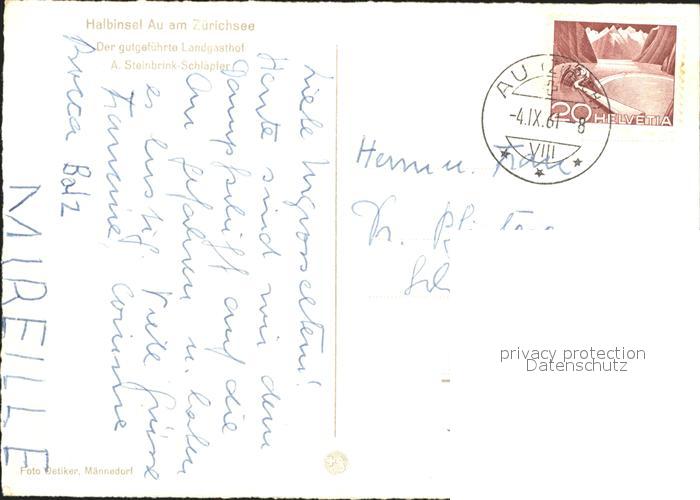 Halbinsel Au am Zürichsee
Der gutgeführte Landgasthof
A. Steinbrink-Schläpfer
Liebe Urgrosseltern!
Heute sind wir dem
Dampfschiff auf die
Au gefahren u. haben
es lustig. Viele Grüsse
Francine, Corinne
Rocca Balz
MIREILLE
Foto Oetiker, Männedorf
AU (ZH)
-4.IX.61-8
VIII
20 HELVETIA
Herrn u. Frau
Dr.
privacy protection
Datenschutz